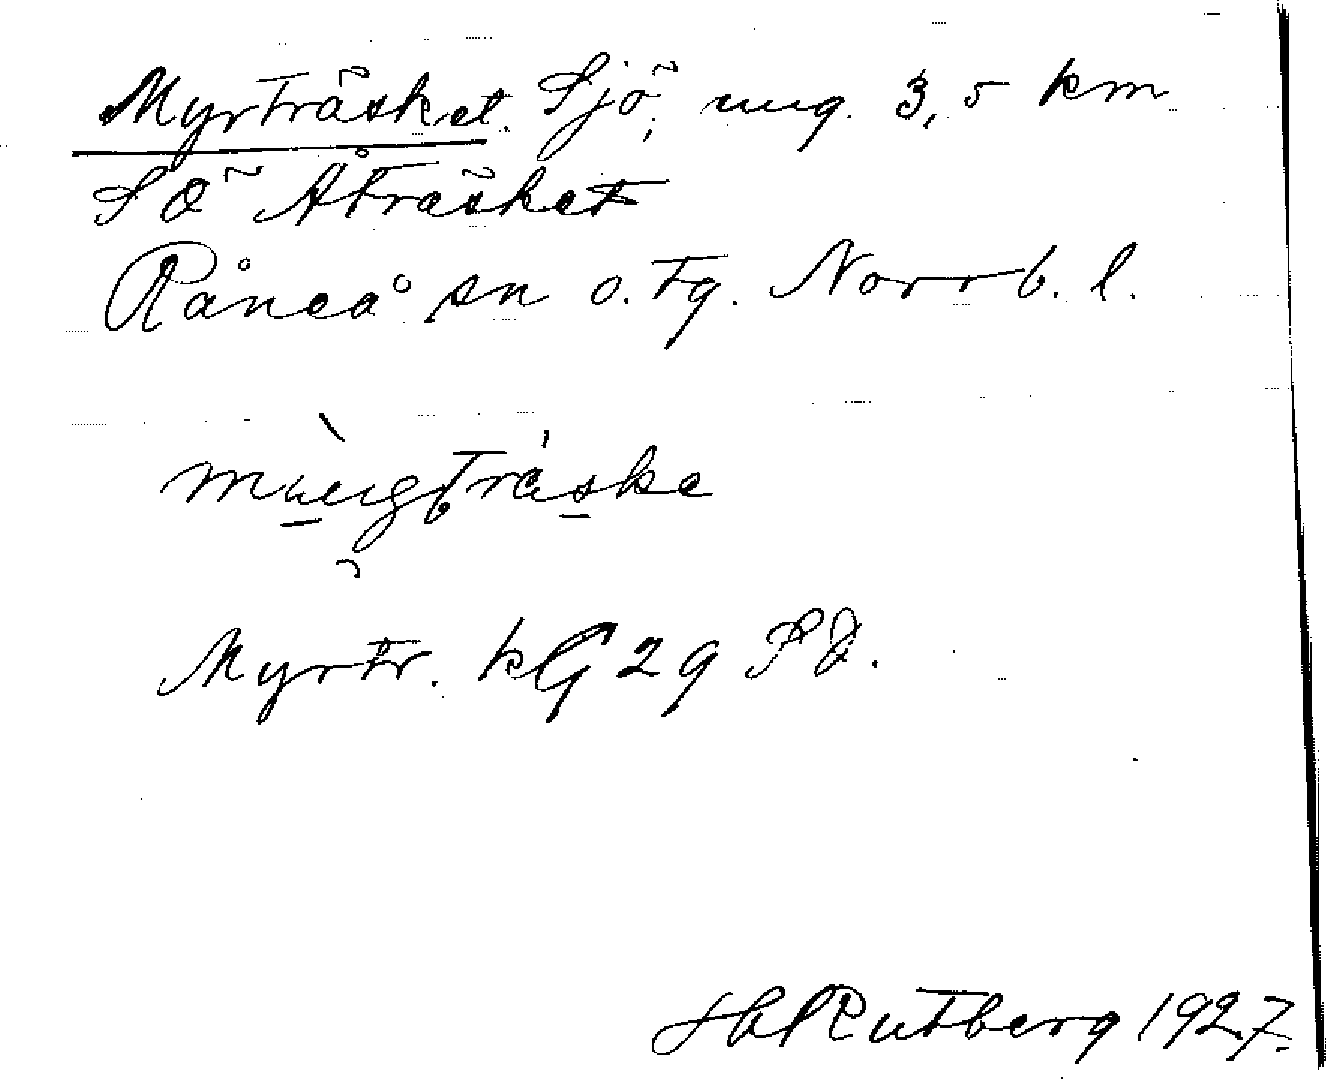 Myrträsket. Sjö, ung. 3,5 km
SÖ Åträsket
Råneå sn o. tg. Norrb. l.
Myrtr. kG 29 SO.
Hbl Rutberg 1927.